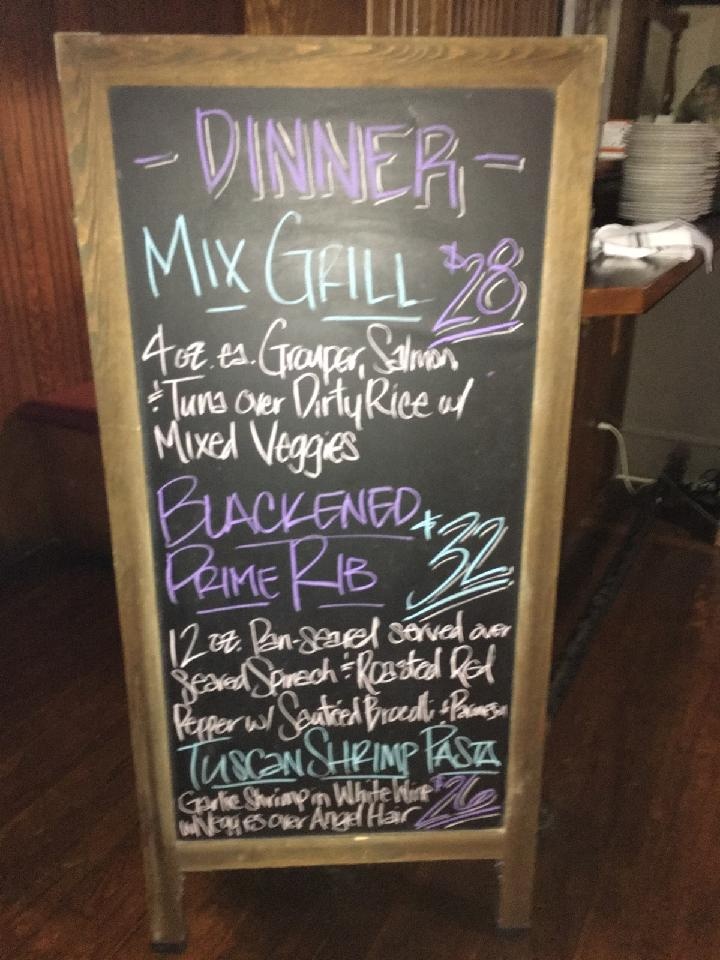 - DINNER -
MIX GRILL $28
4 oz. ea. Grouper, Salmon
& Tuna over Dirty Rice w/
Mixed Veggies
BLACKENED
PRIME RIB $32
12 oz. Pan-seared served over
Seared Spinach & Roasted Red
Pepper w/ Sautéed Brocolli & Parmesan
TUSCAN SHRIMP PASTA
Garlic Shrimp in White Wine
w/ Veggies over Angel Hair $26